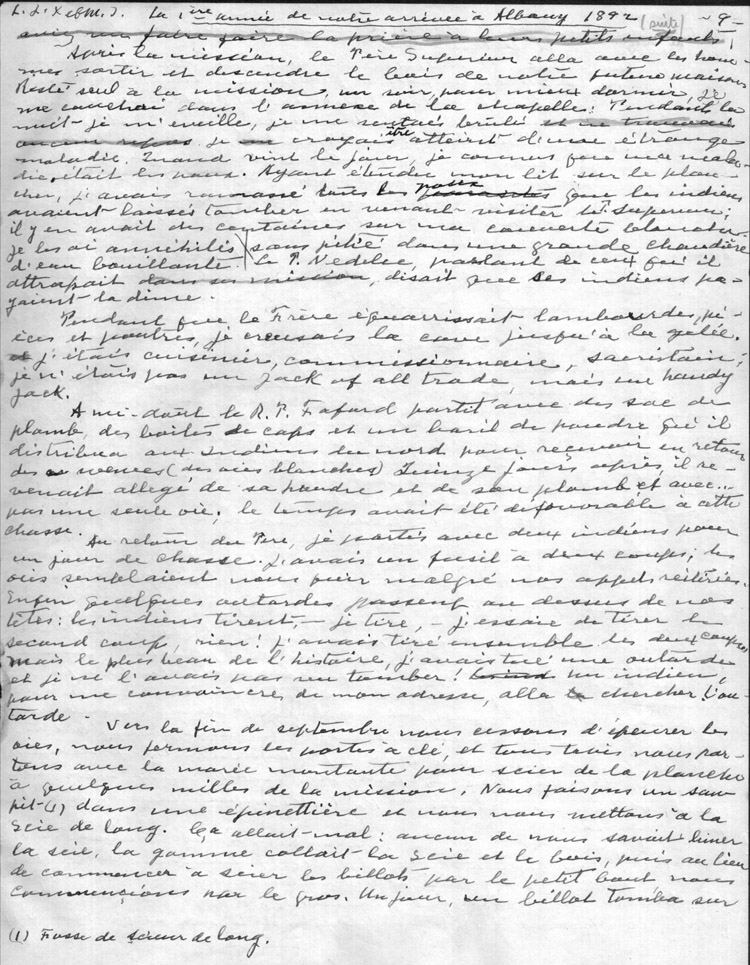 L.J.X et M.I. La 1ière année de notre arrivée à Albany 1892 (suite) -9-
faire faire la prière à leurs petits enfants;
Après la mission, le Père Superieur alla avec les hom-
mes sortir et descendre le bois de notre future maison.
Resté seul à la mission, un soir, pour mieux dormir, je
me couchai dans l'annexe de la chapelle. Pendant la
nuit je m'éveille, je me sentais brûlé et ne trouvais
aucun repos je me croyais être atteint d'une étrange
maladie. Quand vint le jour, je connus que ma mala-
die, était les poux. Ayant étendu mon lit sur le plan-
cher, j'avais ramassé tous les poux que les indiens
avaient laissés tomber en venant visiter le Superieur;
il y en avait des centaines sur ma couverte blanche.
Je les ai annihilés sans pitié dans une grande chaudière
d'eau bouillante. Le P. Nedelec, parlant de ceux qu'il
attrapait dans sa mission, disait que ses indiens pa-
yaint la dime.
Pendant que le Frère équarrissait lambourdes, piè-
ces et poutres, je creusais la cave jusqu'à la gelée.
et j'étais cuisinier, commissionnaire, sacristain;
je n'étais pas un Jack of all trade, mais un handy
Jack.
A mi-août le R.P. Fafard partit avec des sac de
plomb, des boites de caps et un baril de poudre qu'il
distribua aux Indiens du nord pour recevoir en retour
des wewes (des oies blanches) Quinze jours après, il re-
venait allegé de sa poudre et de son plomb et avec...
pas une seule oie; le temps avait été défavorable à cette
chasse.
Au retour du Père, je partis avec deux indiens pour
un jour de chasse. J'avais un fusil à deux coups; les
oies semblaient nous fuir malgré nos appels réitérés.
Enfin quelques outardes passent au dessus de nos
têtes: les indiens tirent, - je tire, - j'essaie de tirer le
second coup, rien! J'avais tiré ensemble les deux coups
mais le plus beau de l'histoire, j'avais tué une outarde
et je ne l'avais pas vu tomber! un indien,
pour me convaincre de mon adresse, alla chercher l'ou-
tarde.
Vers la fin de septembre nous cessons d'épeurer les
oies, nous fermons les portes à clé, et tous trois nous par-
tons avec la marée montante pour scier de la planche
à quelques milles de la mission. Nous faisons un saw
pit (1) dans une épinettière et nous nous mettons à la
scie de long. Ça allait mal: aucun de nous savait limer
la scie, la gomme collait la scie et le bois, puis au lieu
de commencer à scier les billots par le petit bout nous
commencions par le gros. Un jour, un billot tomba sur
(1) Fosse de scieur de long.